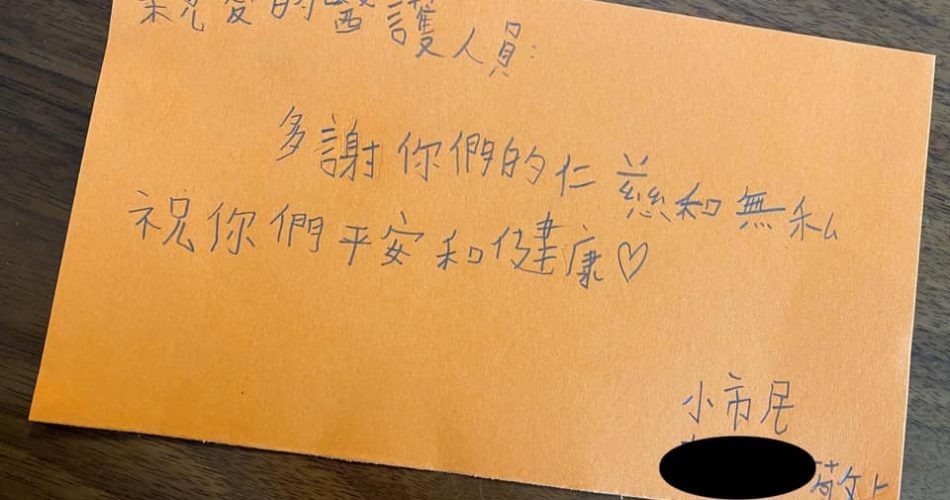 親愛的醫護人員:
多謝你們的仁慈和無私
祝你們平安和健康♡
小市民
敬上